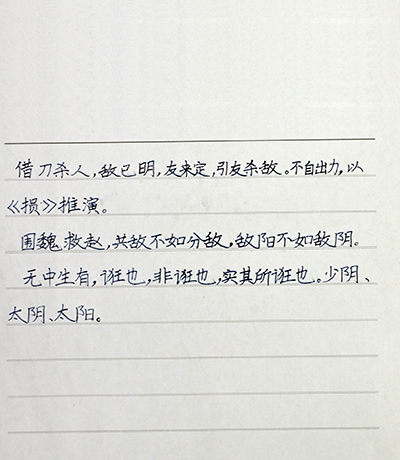 借刀杀人,敌已明,友来定,引友杀敌。不自出力,以
《损》推演。
围魏救赵,共敌不如分敌,敌阳不如敌阴。
无中生有,诳也,非诳也,实其所诳也。少阴、
太阴、太阳。